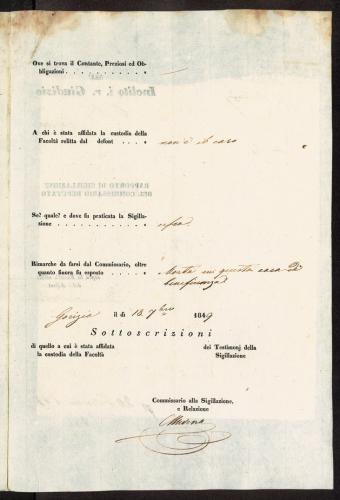 Ove si trova il Contante, Preziosi ed Ob-
bligazioni . . . . . . . . . . . .
Inclito i. r. Giudizio
A chi è stata affidata la custodia della
Facoltà relitta dal defont . . . non è il caso
RAPPORTO DI SIGILLAZIONE
DEL COMMISSARIO DEPUTATO
Se? quale? e dove fu praticata la Sigilla-
zione . . . . . . . . . . . .
Rimarche da farsi dal Commissario, oltre
quanto finora fu esposto . . . . . Morta in questa casa di
beneficenza
Gorizia il dì 18 7bre 1849
Sottoscrizioni
di quello a cui è stata affidata
la custodia della Facoltà
dei Testimonj della
Sigillazione
Commissario alla Sigillazione,
e Relazione